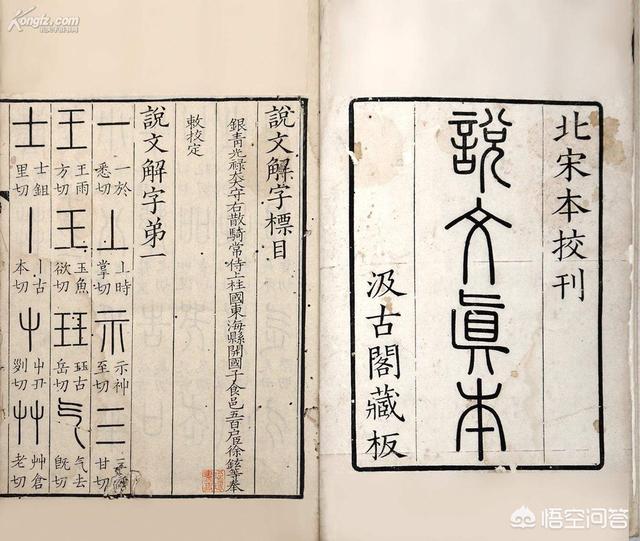 北宋本挍刊
說文眞本
汲古閣藏板
說文解字標目
銀青光祿大夫守右散騎常侍上柱國東海縣開國子食邑五百戶臣徐鉉等奉
敕校定
說文解字弟一
一 一於悉切 丄 丄時掌切 示 示神至切 三 甘切
王 王雨方切 玉 玉魚欲切 玨 玨古岳切 气 气去旣切
士 士鉏里切 丨 丨古本切 屮 屮丑列切 艸 艸倉老切
Kongfz.com
悟空问答